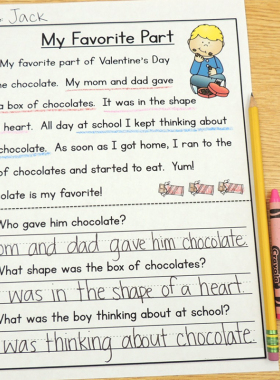 Jack
My Favorite Part
My favorite part of Valentine's Day
he chocolate. My mom and dad gave
a box of chocolates. It was in the shape
heart. All day at school I kept thinking about
chocolate. As soon as I got home, I ran to the
of chocolates and started to eat. Yum!
olate is my favorite!
Who gave him chocolate?
om and dad gave him chocolate.
What shape was the box of chocolates?
was in the shape of a heart.
What was the boy thinking about at school?
was thinking about chocolate.